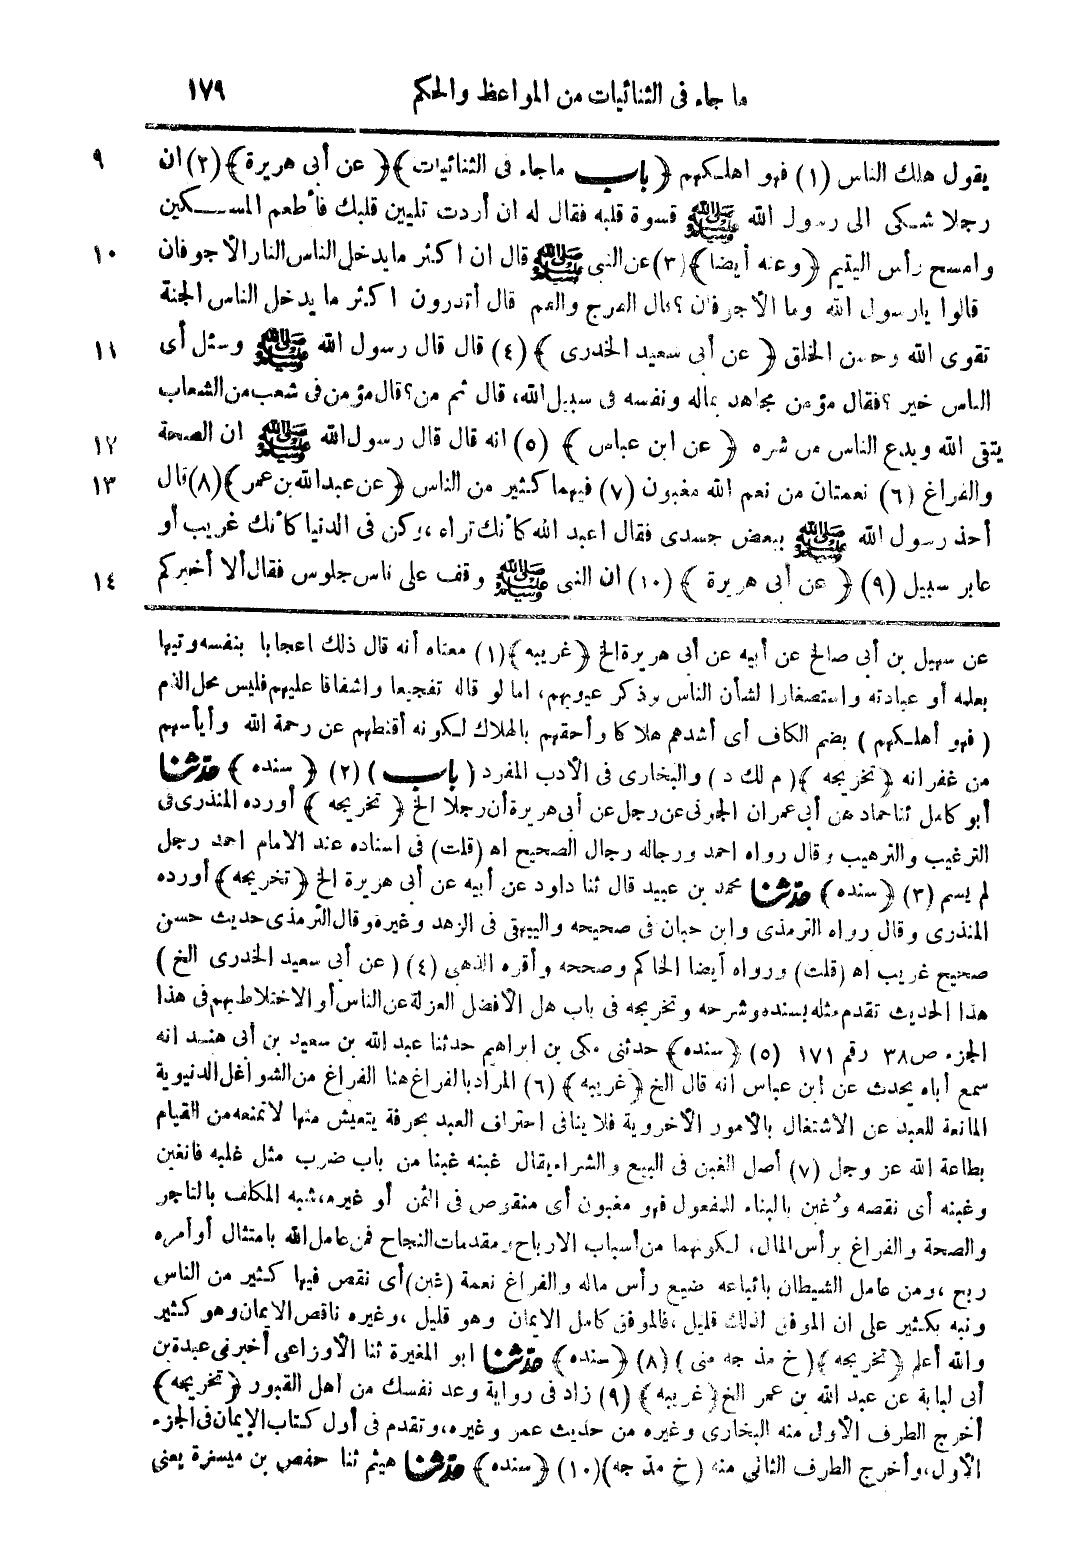 ما جاء فى الثنائيات من المواعظ والحكم ١٧٩
يقول هلك الناس (١) فهو اهلكهم ﴿ باب ما جاء فى الثنائيات ﴾ ﴿ عن أبى هريرة ﴾ (٢) ان ٩
رجلا شكى الى رسول الله ﷺ قسوة قلبه فقال له ان أردت تليين قلبك فأطعم المسكين
وامسح رأس اليتيم ﴿ وعنه أيضا ﴾ (٣) عن النبى ﷺ قال ان اكثر ما يدخل الناس النار الأجوفان ١٠
قالوا يارسول الله وما الأجوفان ؟ قال الفرج والفم قال أتدرون اكثر ما يدخل الناس الجنة
تقوى الله وحسن الخلق ﴿ عن أبى سعيد الخدرى ﴾ (٤) قال قال رسول الله ﷺ وسئل أى ١١
الناس خير ؟ فقال مؤمن مجاهد بماله ونفسه فى سبيل الله، قال ثم من؟ قال مؤمن فى شعب من الشعاب
يتقى الله ويدع الناس من شره ﴿ عن ابن عباس ﴾ (٥) انه قال قال رسول الله ﷺ ان الصحة ١٢
والفراغ (٦) نعمتان من نعم الله مغبون (٧) فيهما كثير من الناس ﴿ عن عبد الله بن عمر ﴾ (٨) قال ١٣
أخذ رسول الله ﷺ ببعض جسدى فقال اعبد الله كأنك تراه ، وكن فى الدنيا كأنك غريب أو
عابر سبيل (٩) ﴿ عن أبى هريرة ﴾ (١٠) ان النبى ﷺ وقف على ناس جلوس فقال ألا أخبركم ١٤
عن سهيل بن أبى صالح عن أبيه عن أبى هريرة الخ ﴿ غريبه ﴾ (١) معناه أنه قال ذلك اعجابا بنفسه وتيها
بعلمه أو عبادته واستصغارا لشأن الناس وذكر عيوبهم، اما لو قاله تفجيعا واشفاقا عليهم فليس محل الذم
( فهو أهلكهم ) بضم الكاف أى أشدهم هلاكا وأحقهم بالهلاك لكونه أقنطهم عن رحمة الله وأيأسهم
من غفرانه ﴿ تخريجه ﴾ ( م لك د ) والبخارى فى الأدب المفرد ( باب ) (٢) ﴿ سنده ﴾ حدثنا
أبو كامل ثنا حماد عن أبى عمران الجونى عن رجل عن أبى هريرة أن رجلا الخ ﴿ تخريجه ﴾ أورده المنذرى فى
الترغيب والترهيب وقال رواه احمد ورجاله رجال الصحيح اه (قلت) فى اسناده عند الامام احمد رجل
لم يسم (٣) ﴿ سنده ﴾ حدثنا محمد بن عبيد قال ثنا داود عن أبيه عن أبى هريرة الخ ﴿ تخريجه ﴾ أورده
المنذرى وقال رواه الترمذى وابن حبان فى صحيحه والبيهقى فى الزهد وغيره وقال الترمذى حديث حسن
صحيح غريب اه (قلت) ورواه أيضا الحاكم وصححه وأقره الذهبى (٤) ( عن أبى سعيد الخدرى الخ )
هذا الحديث تقدم مثله بسنده وشرحه وتخريجه فى باب هل الأفضل العزلة عن الناس أو الاختلاط بهم فى هذا
الجزء ص ٣٨ رقم ١٧١ (٥) ﴿ سنده ﴾ حدثنى مكى بن ابراهيم حدثنا عبد الله بن سعيد بن أبى هند انه
سمع أباه يحدث عن ابن عباس انه قال الخ ﴿ غريبه ﴾ (٦) المراد بالفراغ هنا الفراغ من الشواغل الدنيوية
المانعة للعبد عن الاشتغال بالأمور الأخروية فلا ينافى احتراف العبد بحرفة يتعيش منها لا تمنعه من القيام
بطاعة الله عز وجل (٧) أصل الغبن فى البيع والشراء يقال غبنه غبنا من باب ضرب مثل غلبه فانغبن
وغبنه أى نقصه وغبن بالبناء للمفعول فهو مغبون أى منقوص فى الثمن أو غيره، شبه المكلف بالتاجر
والصحة والفراغ برأس المال، لكونهما من أسباب الارباح ومقدمات النجاح فمن عامل الله بامتثال أوامره
ربح ، ومن عامل الشيطان باتباعه ضيع رأس ماله والفراغ نعمة (غبن) أى نقص فيها كثير من الناس
ونبه بكثير على ان الموفق لذلك قليل ، فالموفق كامل الايمان وهو قليل ، وغيره ناقص الايمان وهو كثير
والله أعلم ﴿ تخريجه ﴾ ( خ مذ جه مى ) (٨) ﴿ سنده ﴾ حدثنا ابو المغيرة ثنا الأوزاعى أخبرنى عبدة بن
أبى لبابة عن عبد الله بن عمر الخ ﴿ غريبه ﴾ (٩) زاد فى رواية وعد نفسك من اهل القبور ﴿ تخريجه ﴾
أخرج الطرف الأول منه البخارى وغيره من حديث عمر وغيره، وتقدم فى أول كتاب الإيمان فى الجزء
الأول، وأخرج الطرف الثانى منه ( خ مذ جه ) (١٠) ﴿ سنده ﴾ حدثنا هيثم ثنا حفص بن ميسرة يعنى